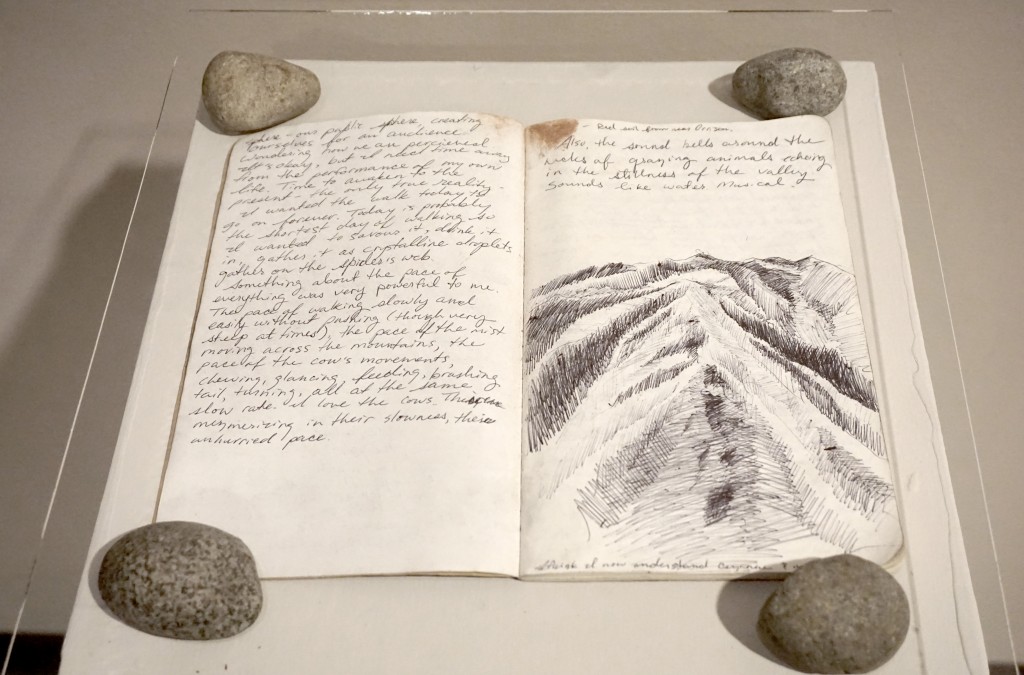 there - our public sphere, creating
ourselves for an audience
wondering how we are percieved
It's okay, but I need time away
from the performance of my own
life. Time to awaken to the
present - the only true reality.
I wanted the walk today to
go on forever. Today is probably
the shortest day of walking so
I wanted to savour it, drink it
in, gather it as crystalline droplets
gather on the spider's web.
Something about the pace of
everything was very powerful to me.
The pace of walking slowly and
easily without pushing (though very
steep at times), the pace of the mist
moving across the mountains, the
pace of the cow's movements,
chewing, glancing, feeding, brushing
tail, turning, all at the same
slow rate. I love the cows. They're
mesmerizing in their slowness, their
unhurried pace.
- Red soil from near
Also, the sound bells around the
necks of grazing animals echoing
in the stillness of the valley
Sounds like water. Musical.
I now understand